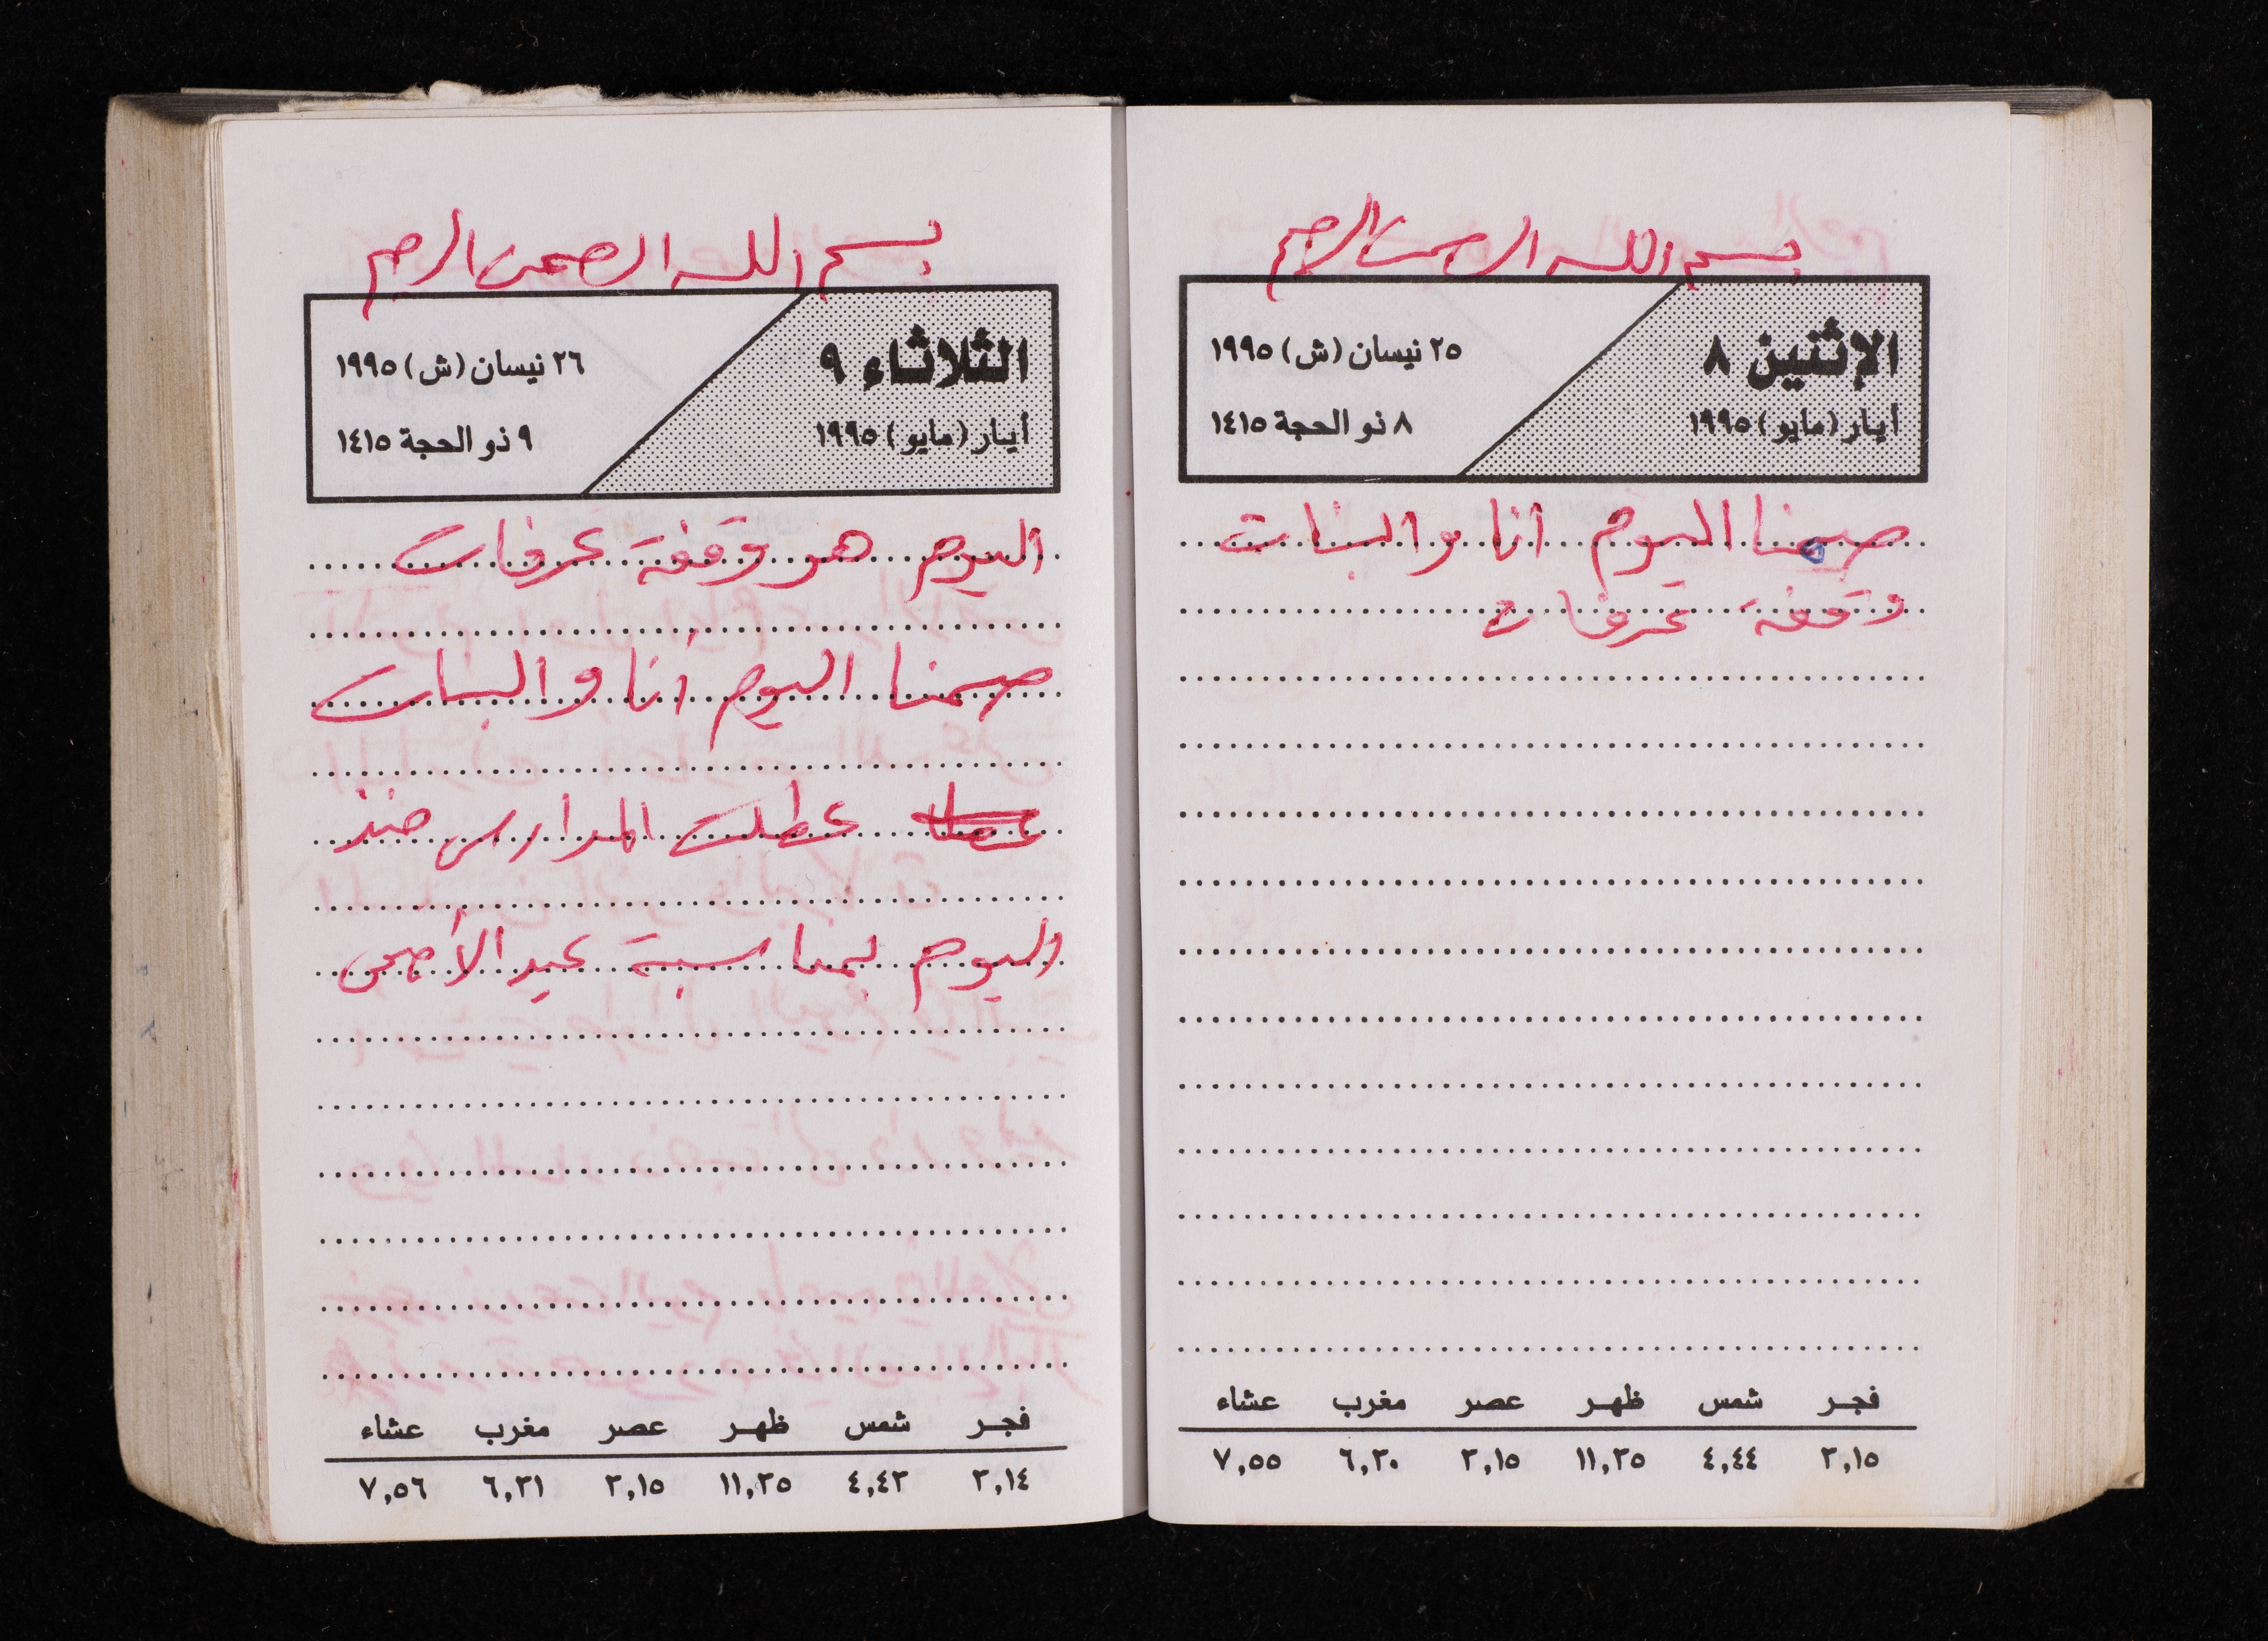 بسم الله الرحمن الرحيم
الإثنين ٨
أيار (مايو) ١٩٩٥
٢٥ نيسان (ش) ١٩٩٥
٨ ذو الحجة ١٤١٥
صمنا اليوم انا والبنات
وقفة عرفات
فجر شمس ظهر عصر مغرب عشاء
٣,١٥ ٤,٤٤ ١١,٣٥ ٣,١٥ ٦,٣٠ ٧,٥٥
بسم الله الرحمن الرحيم
الثلاثاء ٩
أيار (مايو) ١٩٩٥
٢٦ نيسان (ش) ١٩٩٥
٩ ذو الحجة ١٤١٥
اليوم هو وقفة عرفات
صمنا اليوم أنا والبنات
عطلت المدارس منذ
اليوم بمناسبة عيد الأضحى
فجر شمس ظهر عصر مغرب عشاء
٣,١٤ ٤,٤٣ ١١,٣٥ ٣,١٥ ٦,٣١ ٧,٥٦